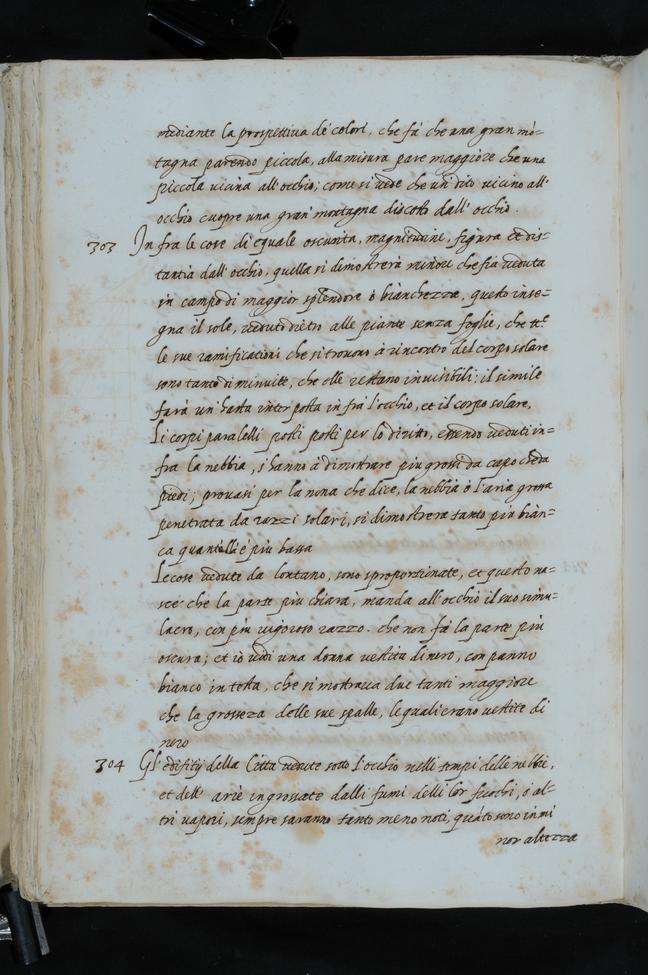 mediante la prospettiua de colori, che fà che una gran mō-
tagna parendo piccola, alla misura pare maggiore che una
piccola uicina all'occhio; come si uede che un dito uicino all'
occhio cuopre una gran montagna discosto dall'occhio.
303 In fra le cose di equale oscurita, magnitudine, figura et dis-
tantia dall'occhio, quella si dimostrerà minore che fia ueduta
in campo di maggior splendore ò bianchezza, questo inse=
gna il sole, ueduto dietro alle piante senza foglie, che tte
le sue ramificationi che si trouono à rincontro del corpo solare
sono tanto diminuite, che elle restano inuisibili; il simile
farà un'hasta inter posta in fra l'occhio, et il corpo solare,
Li corpi paralelli posti posti per lo diritto, essendo ueduti in=
fra la nebbia, s'hanno à dimostrare piu grossi da capo che da
piedi; prouasi per la nona che dice, la nebbia ò l'aria grossa
penetrata da razzi solari, si dimostrera tanto piu biàn-
ca quanto è più bassa
Le cose uedute da lontano, sono sproportionate, et questo na=
sce che la parte più chiara, manda all'occhio il suo simu-
lacro, con piu uigoroso razzo. che non fà la parte più
oscura; et io uidi una donna uestita di nero, con panno
bianco in testa, che si mostraua due tanti maggiore
che la grosseza delle sue spalle, le quali erano uestite di
nero
304 Gl'edifitij della Citta uedute sotto l'occhio nelli tempi delle nebbie,
et dell' arie ingrossate dalli fumi delli lor fuochi, ò al-
tri uapori, sempre saranno tanto meno noti, quāto sono in mi
nor altezza